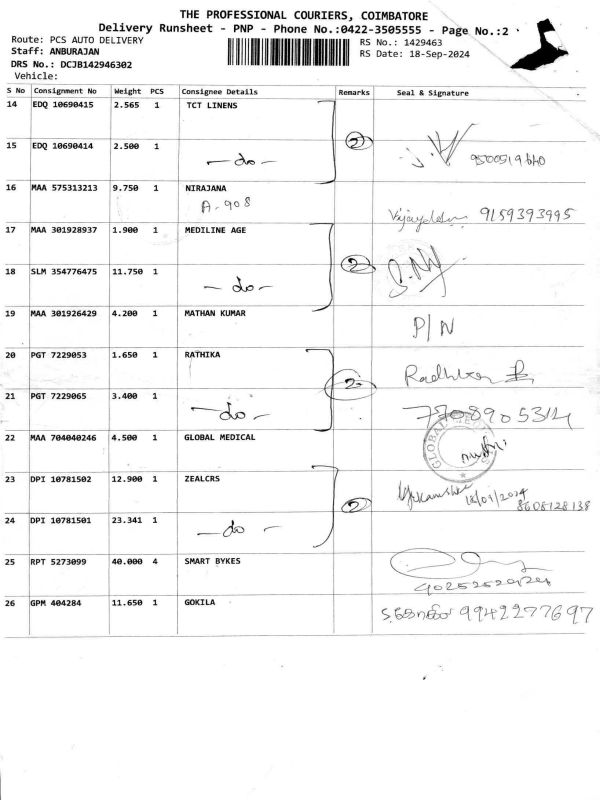 THE PROFESSIONAL COURIERS, COIMBATORE
Delivery Runsheet - PNP - Phone No.:0422-3505555 - Page No.:2
Route: PCS AUTO DELIVERY
RS No.: 1429463
Staff: ANBURAJAN
RS Date: 18-Sep-2024
DRS No.: DCJB142946302
Vehicle:
S No Consignment No Weight PCS Consignee Details Remarks Seal & Signature
14 EDQ 10690415 2.565 1 TCT LINENS
2
15 EDQ 10690414 2.500 1
— do — 9500519640
16 MAA 575313213 9.750 1 NIRAJANA
A-908
9159393995
17 MAA 301928937 1.900 1 MEDILINE AGE
2
18 SLM 354776475 11.750 1
— do —
19 MAA 301926429 4.200 1 MATHAN KUMAR
P/N
20 PGT 7229053 1.650 1 RATHIKA
2
21 PGT 7229065 3.400 1
— do — 7708905314
22 MAA 704040246 4.500 1 GLOBAL MEDICAL
GLOBAL
23 DPI 10781502 12.900 1 ZEALCRS
2 18/09/2024
8608128138
24 DPI 10781501 23.341 1
— do —
25 RPT 5273099 40.000 4 SMART BYKES
26 GPM 404284 11.650 1 GOKILA
S.கோகிலா 9942277697